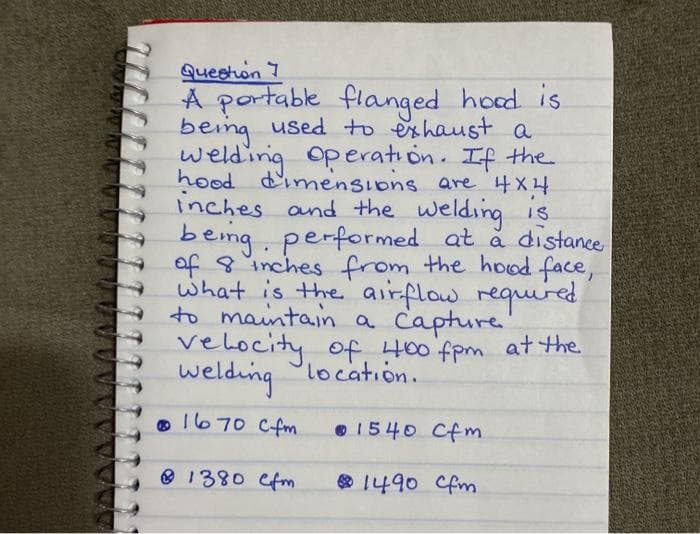 Question 7
A portable flanged hood is
being used to exhaust a
welding operation. If the
hood dimensions are 4x4
inches and the welding is
being. performed at a distance
of 8 inches from the hood face,
what is the airflow required
to maintain a capture
velocity of 400 fpm at the
welding location.
1670 cfm 1540 cfm
1380 cfm 1490 cfm